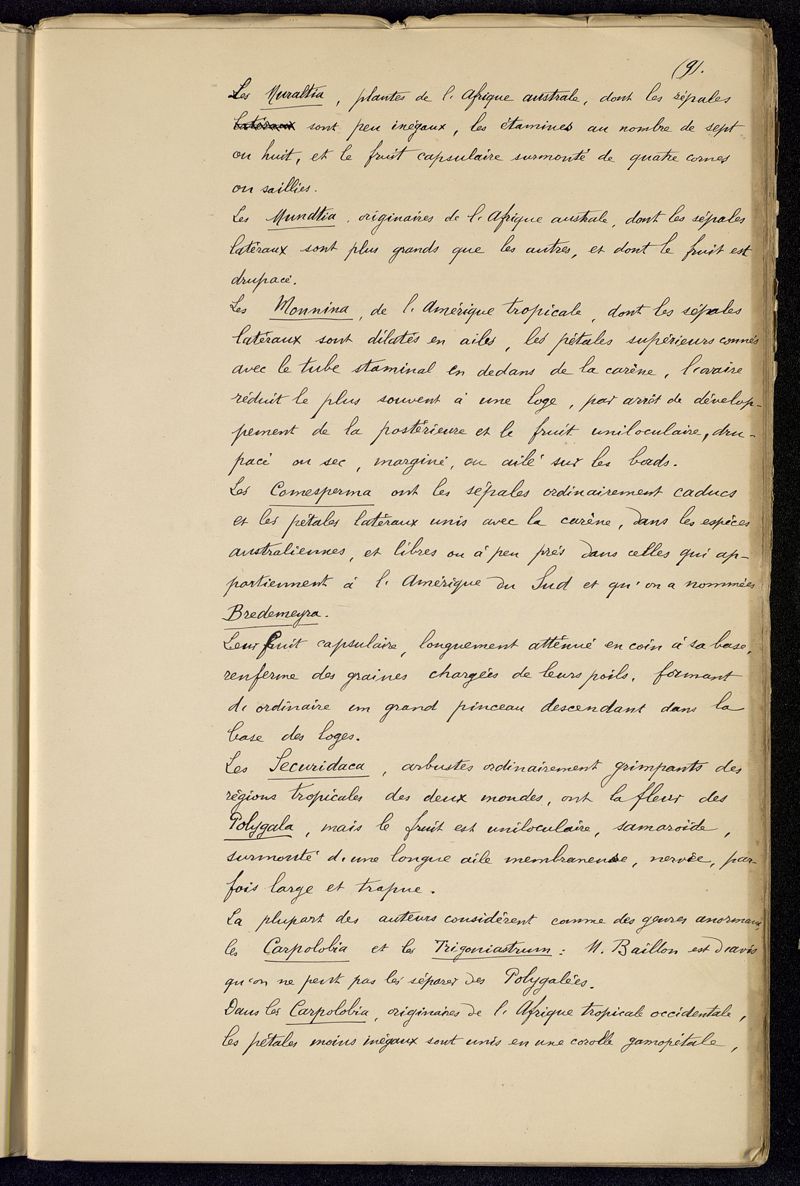 (9).
Les Muraltia, plantes de l'Afrique australe, dont les sépales
latéraux sont peu inégaux, les étamines au nombre de sept
ou huit, et le fruit capsulaire surmonté de quatre cornes
ou saillies.
Les Mundtia, originaires de l'Afrique australe, dont les sépales
latéraux sont plus grands que les autres, et dont le fruit est
drupacé.
Les Monnina, de l'Amérique tropicale, dont les sépales
latéraux sont dilatés en ailes, les pétales supérieurs connés
avec le tube staminal en dedans de la carène, l'ovaire
réduit le plus souvent à une loge, par arrêt de dévelop-
pement de la postérieure et le fruit uniloculaire, dru-
pacé ou sec, marginé, ou ailé sur les bords.
Les Comesperma ont les sépales ordinairement caducs
et les pétales latéraux unis avec la carène, dans les espèces
australiennes, et libres ou à peu près dans celles qui ap-
partiennent à l'Amérique du Sud et qu'on a nommées
Bredemeyra.
Leur fruit capsulaire, longuement atténué en coin à sa base,
renferme des graines chargées de leurs poils, formant
d'ordinaire un grand pinceau descendant dans la
base des loges.
Les Securidaca, arbustes ordinairement grimpants des
régions tropicales des deux mondes, ont la fleur des
Polygala, mais le fruit est uniloculaire, samaroïde,
surmonté d'une longue aile membraneuse, nervée, par-
fois large et trapue.
La plupart des auteurs considèrent comme des genres anormaux
les Carpolobia et les Trigoniastrum : M. Baillon est d'avis
qu'on ne peut pas les séparer des Polygalées.
Dans les Carpolobia, originaires de l'Afrique tropicale occidentale,
les pétales moins inégaux sont unis en une corolle gamopétale,